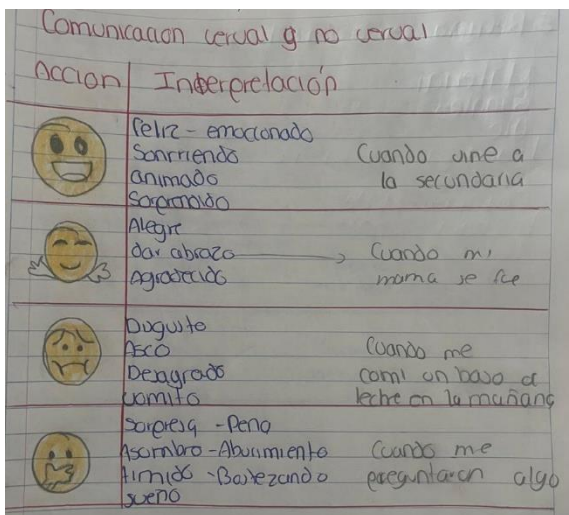 Comunicacion verval y no verval
Accion Interpretación
Feliz - emocionado
Sonrriendo
animado
Sorprendido
Cuando vine a
la secundaria
Alegre
dar abrazo → Cuando mi
Agradecido mama se fue
Disgusto
Asco
Desagrado
vomito
Cuando me
comi un baso d
leche en la mañana
Sorpresa - Pena
Asombro - Aburrimiento
timido - Bostezando
sueño
Cuando me
preguntaron algo